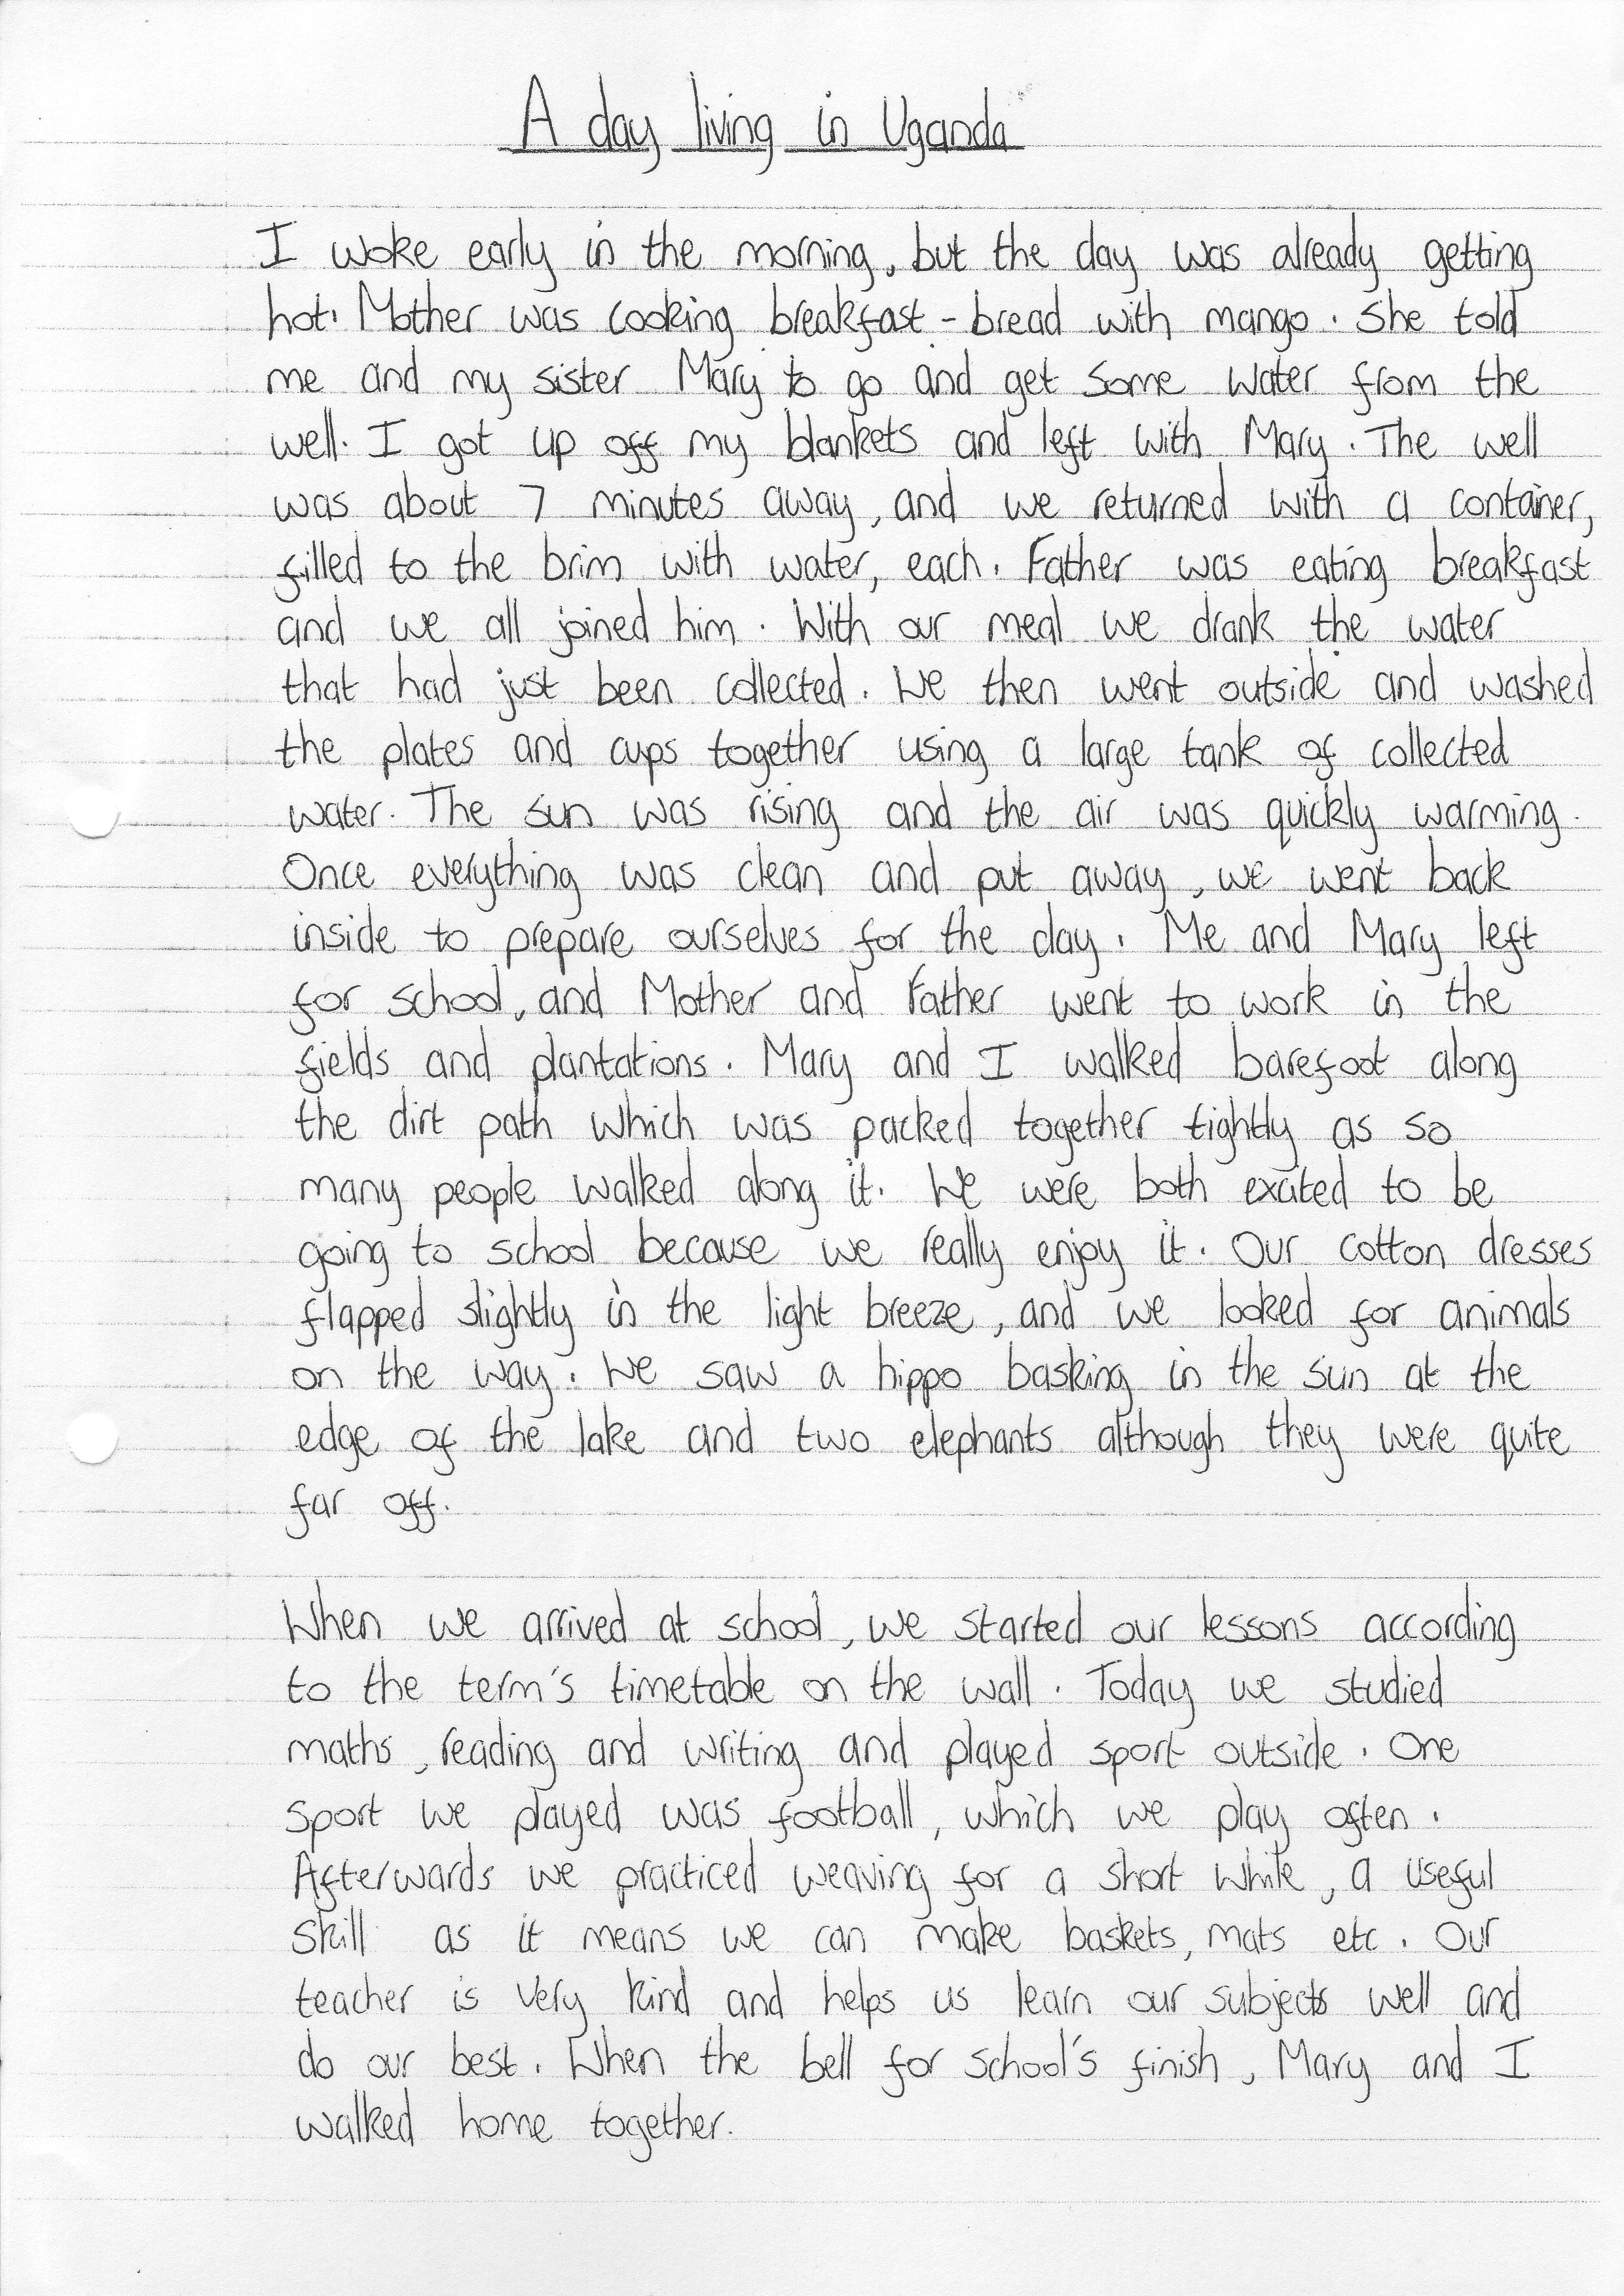 A day living in Uganda
I woke early in the morning, but the day was already getting
hot. Mother was cooking breakfast - bread with mango. She told
me and my sister Mary to go and get some water from the
well. I got up off my blankets and left with Mary. The well
was about 7 minutes away, and we returned with a container,
filled to the brim with water, each. Father was eating breakfast
and we all joined him. With our meal we drank the water
that had just been collected. We then went outside and washed
the plates and cups together using a large tank of collected
water. The sun was rising and the air was quickly warming.
Once everything was clean and put away, we went back
inside to prepare ourselves for the day. Me and Mary left
for school, and Mother and Father went to work in the
fields and plantations. Mary and I walked barefoot along
the dirt path which was packed together tightly as so
many people walked along it. We were both excited to be
going to school because we really enjoy it. Our cotton dresses
flapped slightly in the light breeze, and we looked for animals
on the way. We saw a hippo basking in the sun at the
edge of the lake and two elephants although they were quite
far off.
When we arrived at school, we started our lessons according
to the term's timetable on the wall. Today we studied
maths, reading and writing and played sport outside. One
sport we played was football, which we play often.
Afterwards we practiced weaving for a short while, a useful
skill as it means we can make baskets, mats etc. Our
teacher is very kind and helps us learn our subjects well and
do our best. When the bell for school's finish, Mary and I
walked home together.